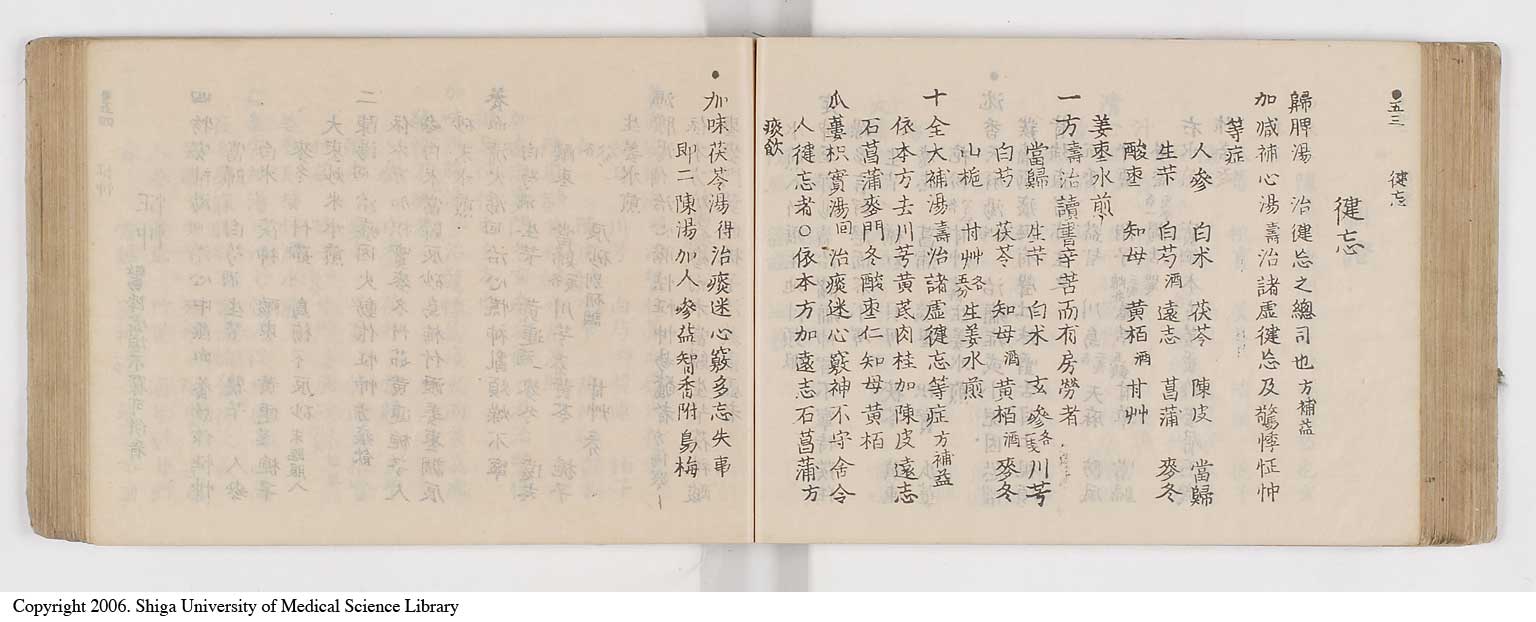 ●五三　健忘
健忘
歸脾湯　治健忘之總司也方補益
加減補心湯壽治諸虛健忘及驚悸怔忡
等症
人參　白朮　茯苓　陳皮　當歸
生芐　白芍酒　遠志　菖蒲　麥冬
酸棗　知母　黃栢酒　甘艸
姜棗水煎
一方壽治讀書辛苦而有房勞者
當歸　生芐　白朮　玄參各一戔　川芎
白芍　茯苓　知母酒　黃栢酒　麥冬
山梔　甘艸各五分　生姜水煎
十全大補湯壽治諸虛健忘等症方補益
依本方去川芎黃芪肉桂加陳皮遠志
石菖蒲麥門冬酸棗仁知母黃栢
瓜蔞枳實湯回　治痰迷心竅神不守舍令
人健忘者○依本方加遠志石菖蒲方
痰飲
●
加味茯苓湯得治痰迷心竅多忘失事
即二陳湯加人參益智香附烏梅
Copyright 2006. Shiga University of Medical Science Library